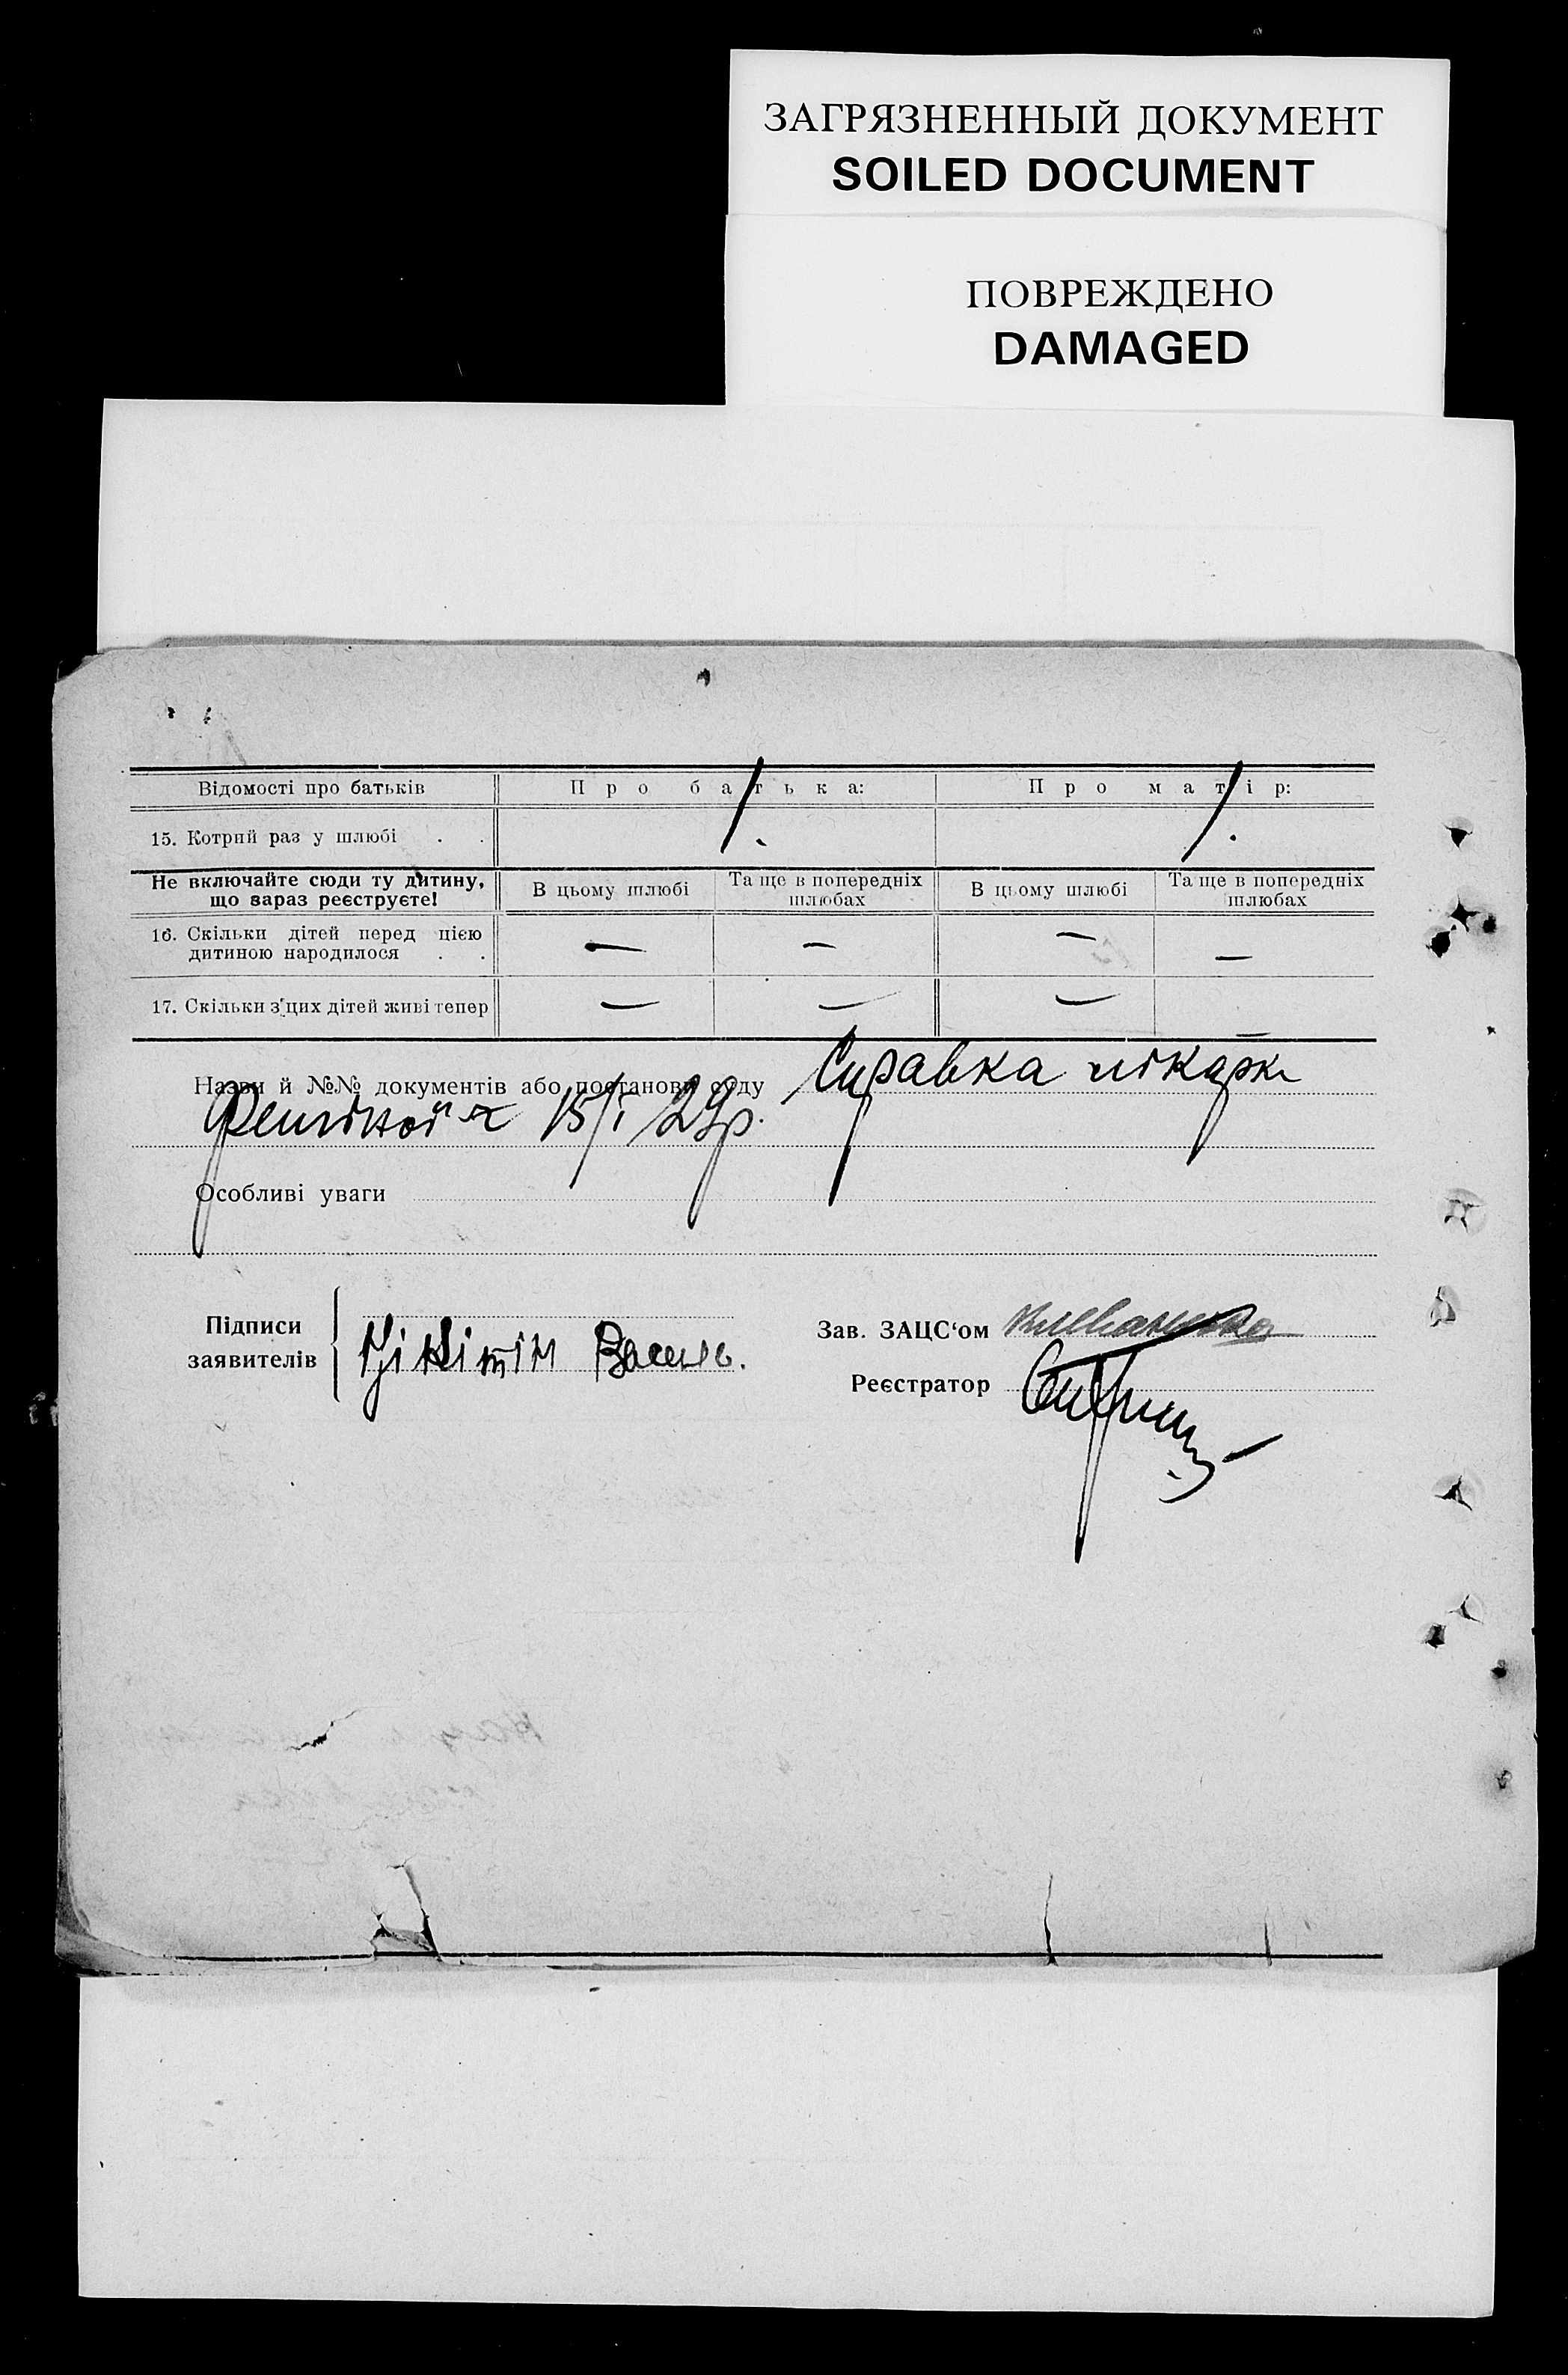 ЗАГРЯЗНЕННЫЙ ДОКУМЕНТ
SOILED DOCUMENT
ПОВРЕЖДЕНО
DAMAGED
Відомості про батьків Про батька: Про матір:
15. Котрий раз у шлюбі . . 1. 1.
Не включайте сюди ту дитину, що зараз реєструєте! В цьому шлюбі Та ще в попередніх шлюбах В цьому шлюбі Та ще в попередніх шлюбах
16. Скільки дітей перед цією дитиною народилося . . — — — —
17. Скільки з цих дітей живі тепер — — — —
Назви й №№ документів або постанови суду Справка лікарки
15/I 29р.
Особливі уваги
Підписи заявителів
Нікітін Василь.
Зав. ЗАЦС‘ом
Реєстратор